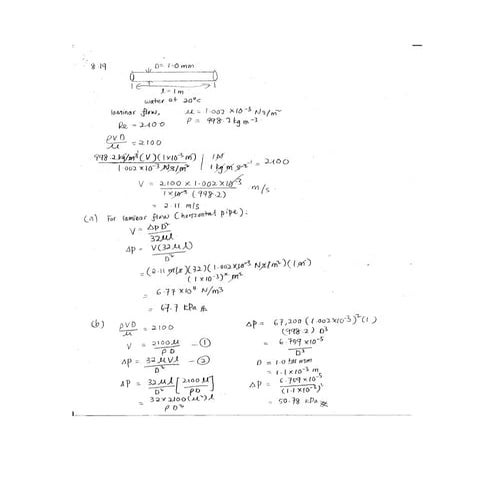 8.19
D = 1.0 mm
l = 1m
water at 20°C
laminar flow, μ = 1.002 × 10⁻³ Ns/m²
Re = 2100 ρ = 998.2 kg m⁻³
ρVD/μ = 2100
998.2 kg/m³ (V)(1×10⁻³ m) / 1.002 × 10⁻³ Ns/m² | 1N / 1 kg m s⁻² = 2100
V = 2100 × 1.002 × 10⁻³ / 1×10⁻³ (998.2) m/s
= 2.11 m/s
(a) For laminar flow (horizontal pipe).
V = ΔPD²/32μl
ΔP = V(32μl)/D²
= (2.11 m/s)(32)(1.002×10⁻³ Ns/m²)(1m) / (1×10⁻³)² m²
= 6.77 × 10⁴ N/m²
= 67.7 kPa
(b) ρVD/μ = 2100
V = 2100μ/ρD — ①
ΔP = 32μVl/D² — ②
ΔP = 32μl/D² [2100μ/ρD]
= 32×2100(μ²)l / ρD³
ΔP = 67,200 (1.002×10⁻³)²(1) / (998.2) D³
= 6.759 × 10⁻⁵ / D³
D = 1.0
= 1.1 × 10⁻³ m
ΔP = 6.759 × 10⁻⁵ / (1.1×10⁻³)³
= 50.78 kPa